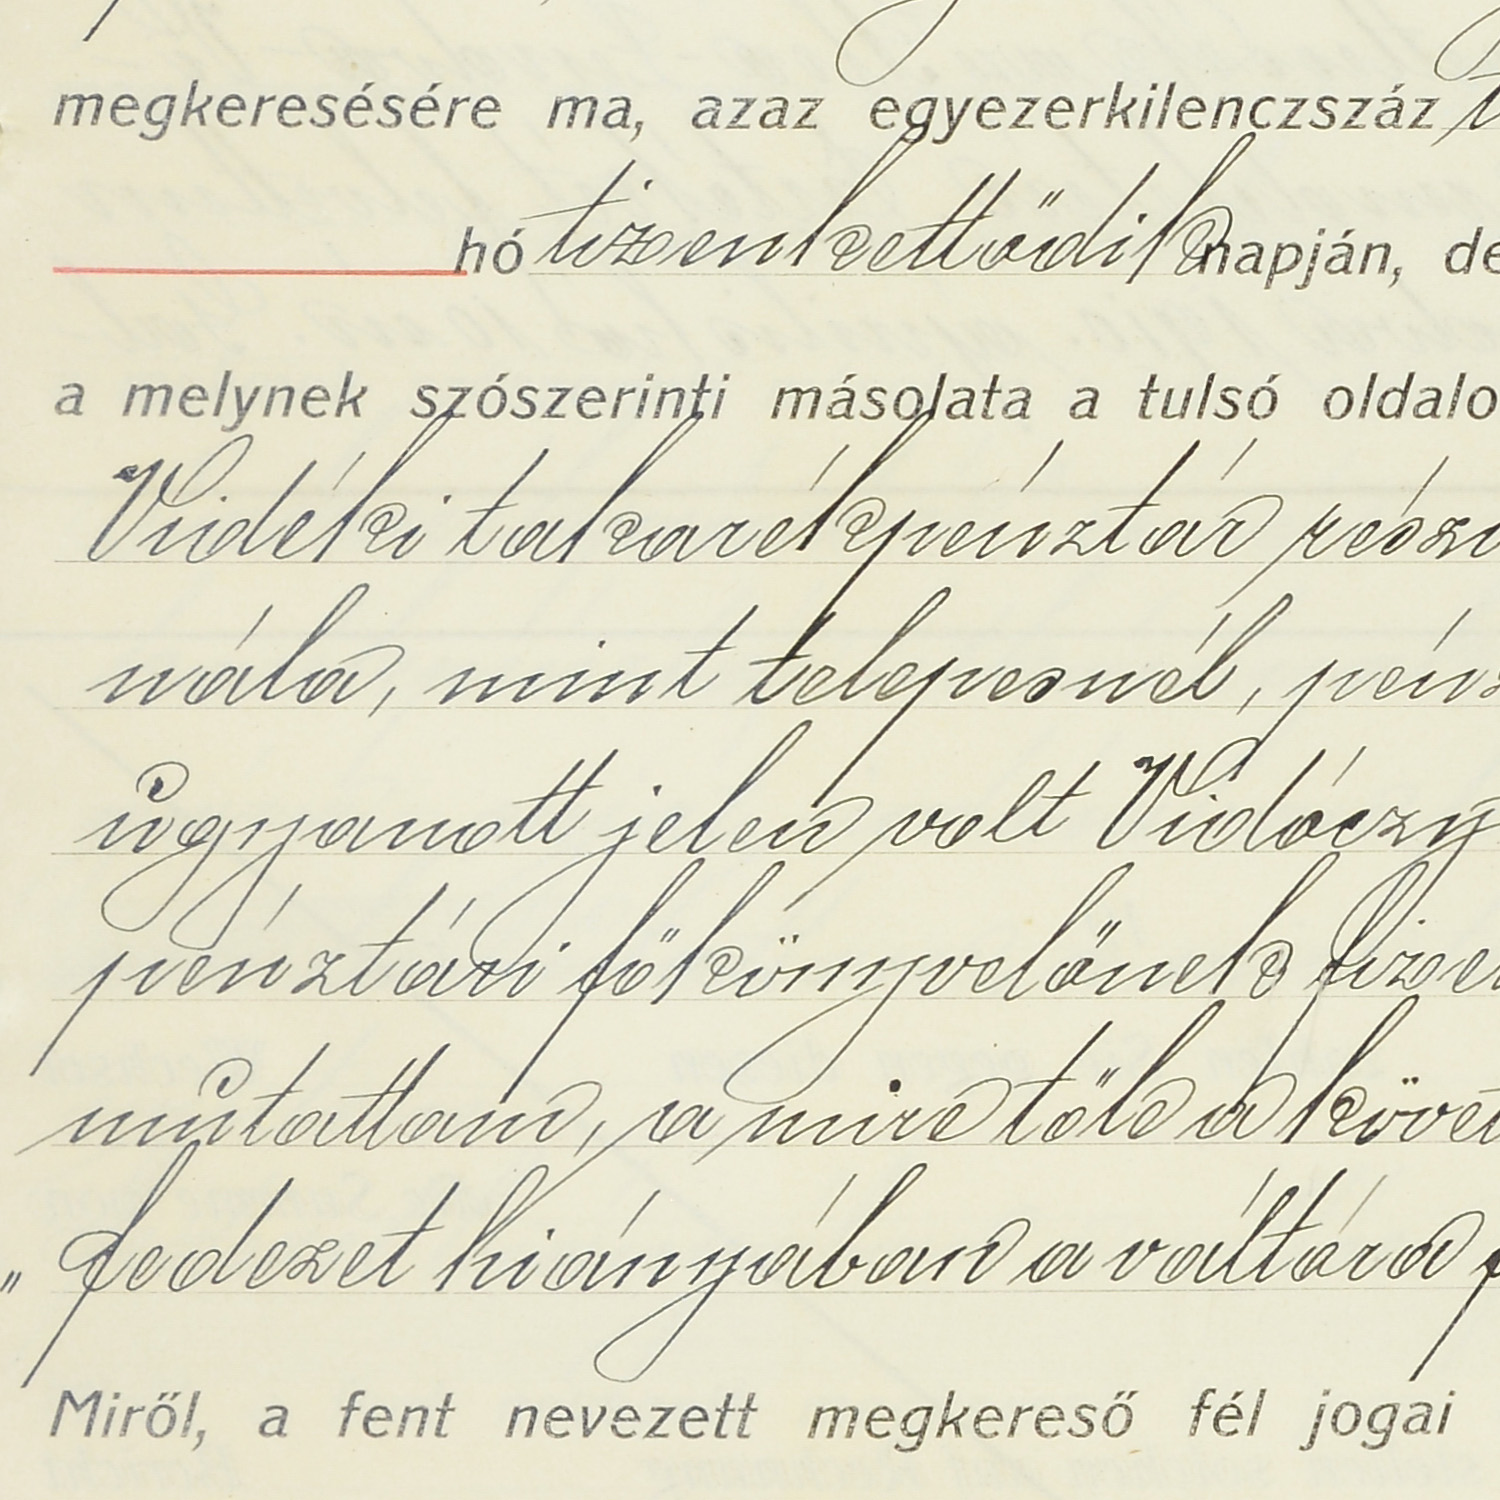 megkeresésére ma, azaz egyezerkilenczszáz
hó tizenkettődik napján, de
a melynek szószerinti másolata a tulsó oldalo
Vidéki takarékpénztár rész
nála, mint telepesnél, pénz
úgyanott jelen volt Vidóczy
pénztári főkönyvelőnek fizet
mútattam, a mire tőle a követ
„ fedezet hiányában a váltóra f
Miről, a fent nevezett megkereső fél jogai